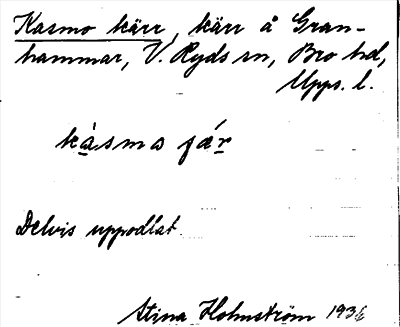 Kasmo kärr, kärr å Gran-
hammar, V. Ryds sn, Bro hd,
Upps. l.
kàsmo ɟár
Delvis uppodlat.
Stina Holmström 1936